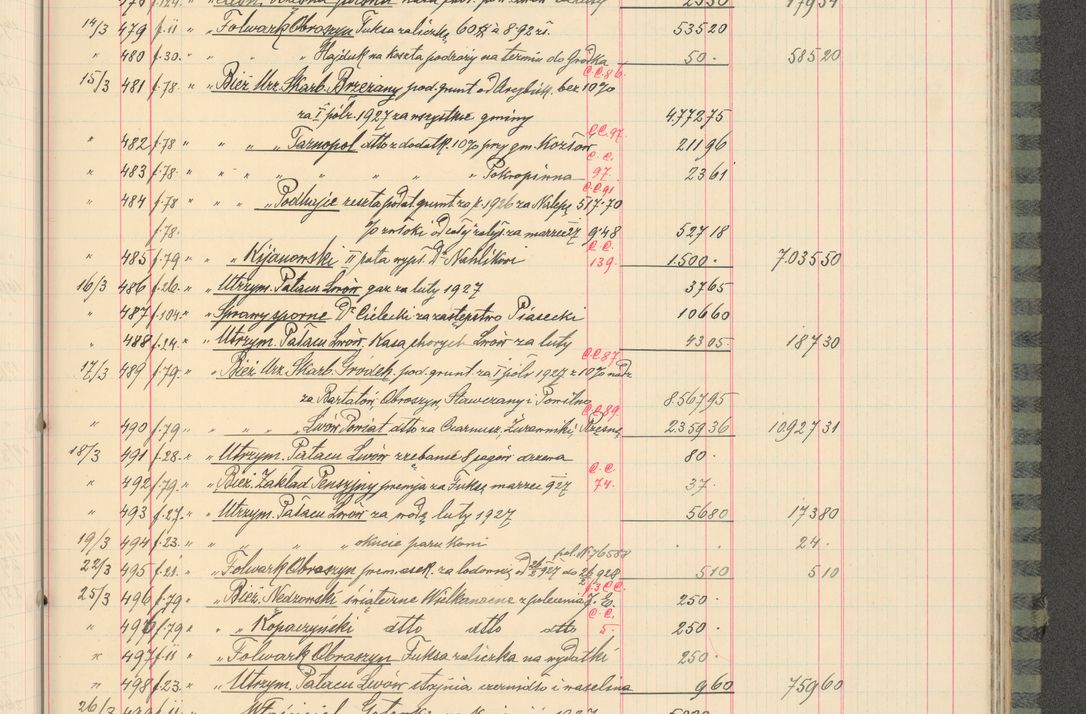 14/3 479 f.11 " " Folwark Obroszyn Fuksa zaliczkę 60 à 892 zł. 53520
" 480 f.30. " " " Hajduk na koszta podróży na termin do Gródka 50. 58520
C.C.86.
15/3 481 f.78. " " Bież. Urz. Skarb. Brzeżany pod. grunt od Arcybisk. bez 10%
za I półr. 1927 za wszystkie gminy 477275
C.C.97.
" 482 f.78 " " " " Tarnopol dtto z dodatk. 10% przy gm. Kozłów 21196
C.C.
" 483 f.78. " " " " " " " Pokropiwna 97. 2361
C.C.91
" 484 f.78 " " " " Podhajce reszta podat. grunt za r. 1926 za 517.70
f.78. % zwłoki za marzec 27 948 52718
C.C.
" 485 f.79 " " " Kijanowski II rata wypł. Dr Nahlikowi 139. 1.500. 703550
16/3 486 f.26. " " Utrzym. Pałacu Lwów gaz za luty 1927 3765
" 487 f.104. " " Sprawy sporne Dr Cielecki za zastępstwo Piasecki 10660
" 488 f.24. " " Utrzym. Pałacu Lwów. Kasa chorych Lwów za luty 4305. 18730
C.C.87.
17/3 489 f.79. " " Bież. Urz. Skarb. Gródek. pod. grunt za I półr 1927 z 10% nadz
za Bartatów, Obroszyn, Stawczany i Pomitno 856795
C.C.89.
" 490 f.79. " " " " Lwów Powiat dtto za Czarnusz, Żurawniki, Rzęsnę 235936 1092731
18/3 491 f.28. " " Utrzym. Pałacu Lwów zrąbanie 8 sągów drzewa 80.
C.C.
" 492 f.79. " " Bież. Zakład Pensyjny premja za Fuksę marzec 927 74. 37.
" 493 f.27. " " Utrzym. Pałacu Lwów za wodę luty 1927 5680 17380
19/3 494 f.23. " " " " okucie pary koni . . 24.
pol. N 76588
22/3 495 f.21. " " Folwark Obroszyn prem. asek. za lodownię od 26/2 927 do 26/2 928. 510 510
f.3 C.C.
25/3 496 f.79 " " Bież. Nedzowski świąteczne Wielkanocne z polecenia J. E. 250.
C.C.
" f.79 " " " Kopaczyński dtto dtto dtto 5. 250.
" 497 f.11 " " Folwark Obroszyn Fuksa zaliczka na wydatki 250.
" 498 f.23. " " Utrzym. Pałacu Lwów stajnia czernidło i waselina 960 75960
26/3